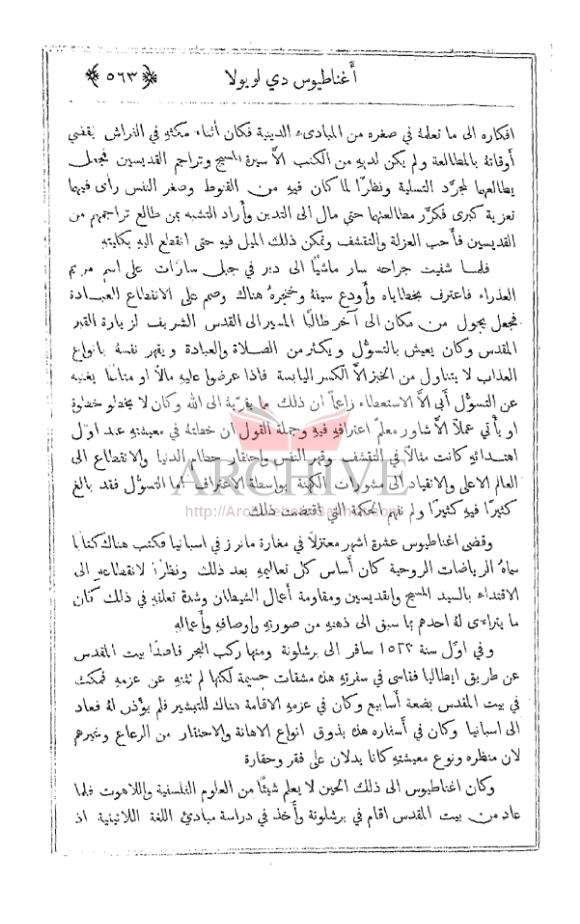 أغناطيوس دي لويولا
﴿ ٥٦٣ ﴾
افكاره الى ما تعلمهُ في صغره من المبادىء الدينية فكان أثناء مكثهِ في الفراش يقضي
أوقاتهُ بالمطالعة ولم يكن لديهِ من الكتب الاَّ سيرة المسيح وتراجم القديسين فجعل
يطالعها لمجرَّد التسلية ونظرًا لما كان فيهِ من القنوط وصغر النفس رأى فيها
تعزية كبرى فكرَّر مطالعتها حتي مال الى التدين وأراد التشبه بمن طالع تراجمهم من
القديسين فأحب العزلة والتقشف وتمكن ذلك الميل فيهِ حتى انقطع اليهِ بكليتهِ
فلما شفيت جراحه سار ماشيًا الى دير في جبل سارات على اسم مريم
العذراء فاعترف بخطاياه وأودع سيفهُ وخنجرهُ هناك وصمم على الانقطاع للعبادة
فجعل يجول من مكان الى آخر طالبًا المسير الى القدس الشريف لزيارة القبر
المقدس وكان يعيش بالتسوُّل ويكثر من الصلاة والعبادة ويقهر نفسهُ بانواع
العذاب لا يتناول من الخبز الاَّ الكسر اليابسة فاذا عرضوا عليهِ مالاً او متاعًا يغنيه
عن التسوُّل أبى الاَّ الاستعطاء زاعمًا ان ذلك مما يقرّبهُ الى الله وكان لا يخطو خطوة
او يأتي عملاً الاَّ شاور معلم اعترافهِ فيهِ وجملة القول ان خطتهُ في معيشتهِ عند اول
اهتدائهِ كانت مثالاً في التقشف وقهر النفس واحتقار حطام الدنيا والانقطاع الى
العالم الاعلى والانقياد الى مشورات الكهنة بواسطة الاعتراف اما التسوُّل فقد بالغ
كثيرًا فيهِ كثيرًا ولم نفهم الحكمة التي اقتضت ذلك
وقضى اغناطيوس عشرة اشهر معتزلاً في مغارة مانرز في اسبانيا فكتب هناك كتابا
سماهُ الرياضات الروحية كان أساس كل تعاليمهِ بعد ذلك ونظرًا لانقطاعهِ الى
الاقتداء بالسيد المسيح والقديسين ومقاومة أعمال الشيطان وشدة تعلقهِ في ذلك كان
ما يتراءى لهُ احدهم بما سبق الى ذهنهِ من صورتهِ واوصافهِ وأعمالهِ
وفي اوَّل سنة ١٥٢٣ سافر الى برشلونة ومنها ركب البحر قاصدًا بيت المقدس
عن طريق ايطاليا فقاسى في سفرتهِ هذه مشقات جسيمة لكنها لم تثنهِ عن عزمهِ فمكث
في بيت المقدس بضعة أسابيع وكان في عزمهِ الاقامة هناك للتبشير فلم يؤذن لهُ فعاد
الى اسبانيا وكان في أسفاره هذه يذوق انواع الاهانة والاحتقار من الرعاع وغيرهم
لان منظره ونوع معيشتهِ كانا يدلان على فقر وحقارة
وكان اغناطيوس الى ذلك الحين لا يعلم شيئًا من العلوم الفلسفية واللاهوت فلما
عاد من بيت المقدس اقام في برشلونة وأخذ في دراسة مبادئ اللغة اللاتينية اذ
ARCHIVE